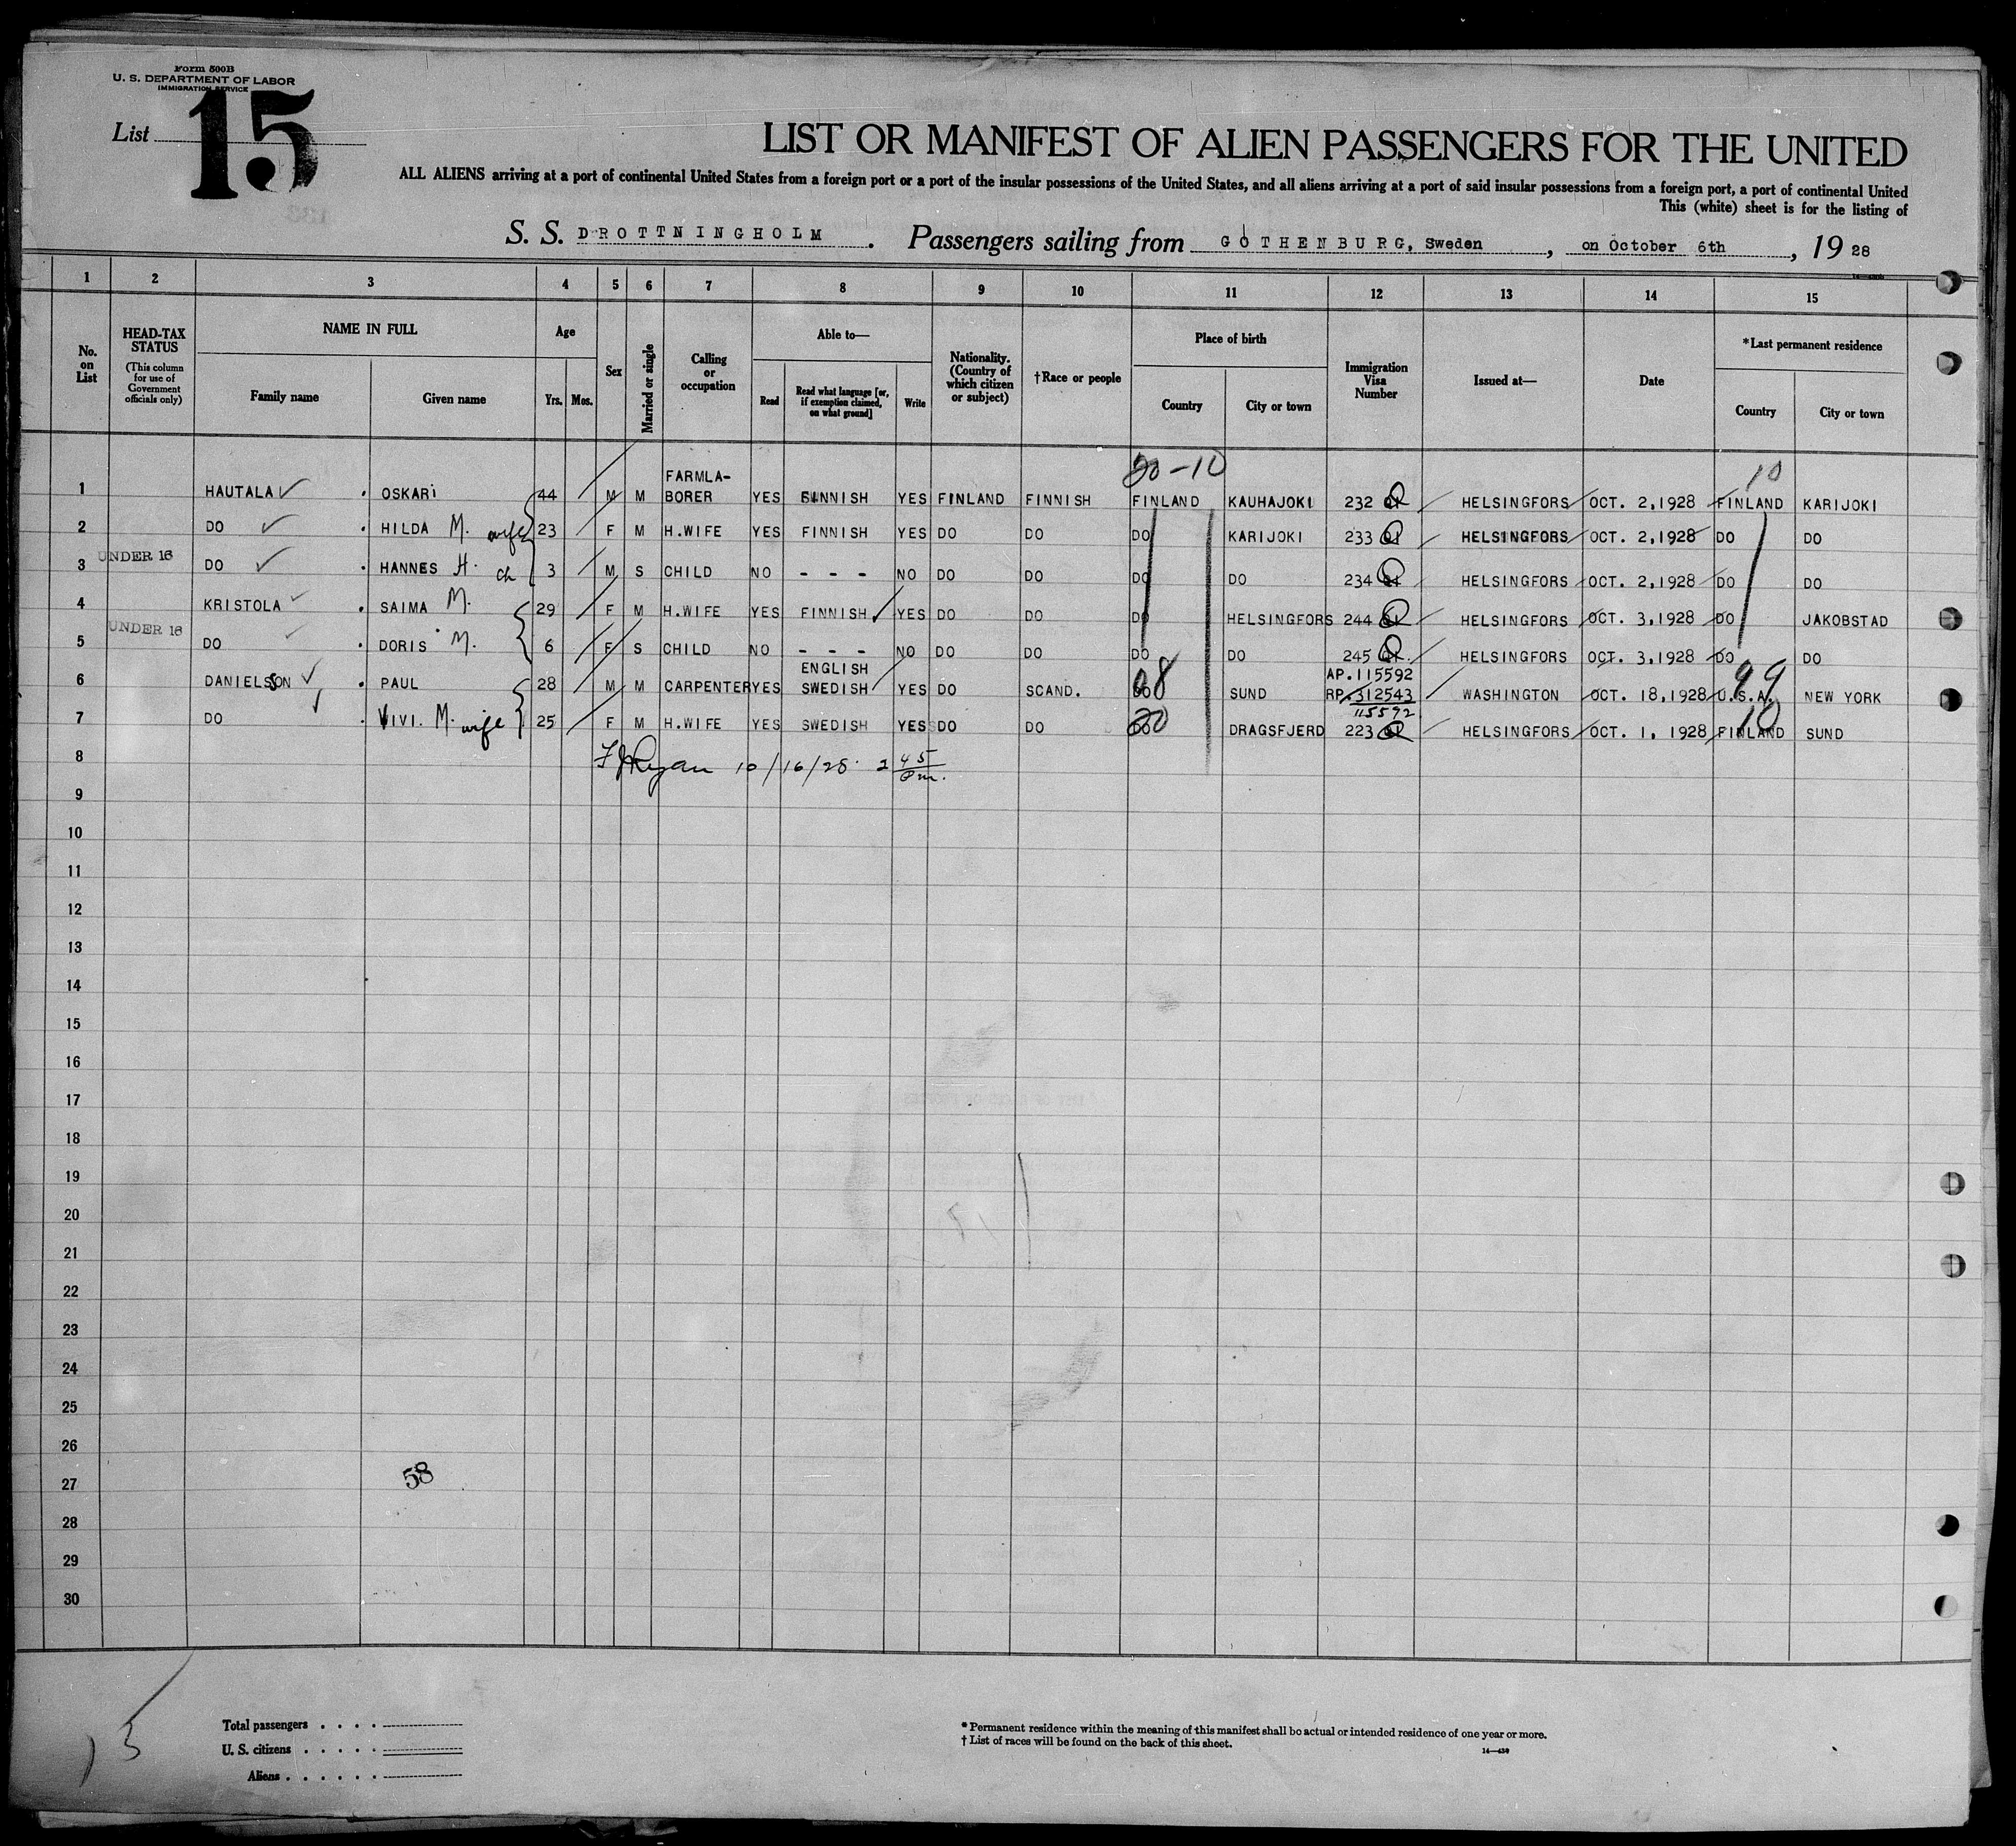 Form 500B
U. S. DEPARTMENT OF LABOR
IMMIGRATION SERVICE
List 15
LIST OR MANIFEST OF ALIEN PASSENGERS FOR THE UNITED
ALL ALIENS arriving at a port of continental United States from a foreign port or a port of the insular possessions of the United States, and all aliens arriving at a port of said insular possessions from a foreign port, a port of continental United
This (white) sheet is for the listing of
S. S. DROTTNINGHOLM. Passengers sailing from GOTHENBURG, Sweden, on October 6th, 19 28
1 2 3 4 5 6 7 8 9 10 11 12 13 14 15
No. on List
HEAD-TAX STATUS
(This column for use of Government officials only)
NAME IN FULL
Family name
Given name
Age
Yrs. Mos.
Sex
Married or single
Calling or occupation
Able to—
Read
Read what language [or, if exemption claimed, on what ground]
Write
Nationality. (Country of which citizen or subject)
†Race or people
Place of birth
Country
City or town
Immigration Visa Number
Issued at—
Date
*Last permanent residence
Country
City or town
20-10 10
1 HAUTALA OSKARI 44 M M FARMLA-BORER YES FINNISH YES FINLAND FINNISH FINLAND KAUHAJOKI 232 HELSINGFORS OCT. 2,1928 FINLAND KARIJOKI
2 DO HILDA M. wife 23 F M H.WIFE YES FINNISH YES DO DO DO KARIJOKI 233 HELSINGFORS OCT. 2,1928 DO DO
UNDER 16
3 DO HANNES H. ch 3 M S CHILD NO - - - NO DO DO DO DO 234 HELSINGFORS OCT. 2,1928 DO DO
4 KRISTOLA SAIMA M. 29 F M H.WIFE YES FINNISH YES DO DO DO HELSINGFORS 244 HELSINGFORS OCT. 3,1928 DO JAKOBSTAD
UNDER 16
5 DO DORIS M. 6 F S CHILD NO - - - NO DO DO DO DO 245 HELSINGFORS OCT. 3,1928 DO DO
6 DANIELSSON PAUL 28 M M CARPENTER YES ENGLISH SWEDISH YES DO SCAND. DO 08 SUND AP.115592 RP.312543 WASHINGTON OCT. 18,1928 U.S.A. 99 NEW YORK
115592
7 DO VIVI. M. wife 25 F M H.WIFE YES SWEDISH YES DO DO DO 20 DRAGSFJERD 223 HELSINGFORS OCT. 1, 1928 FINLAND 10 SUND
8 FJRyan 10/16/28 2 45 Pm.
9
10
11
12
13
14
15
16
17
18
19
20
21
22
23
24
25
26
27 58
28
29
30
15
Total passengers
U. S. citizens
Aliens
* Permanent residence within the meaning of this manifest shall be actual or intended residence of one year or more.
† List of races will be found on the back of this sheet.
14—439